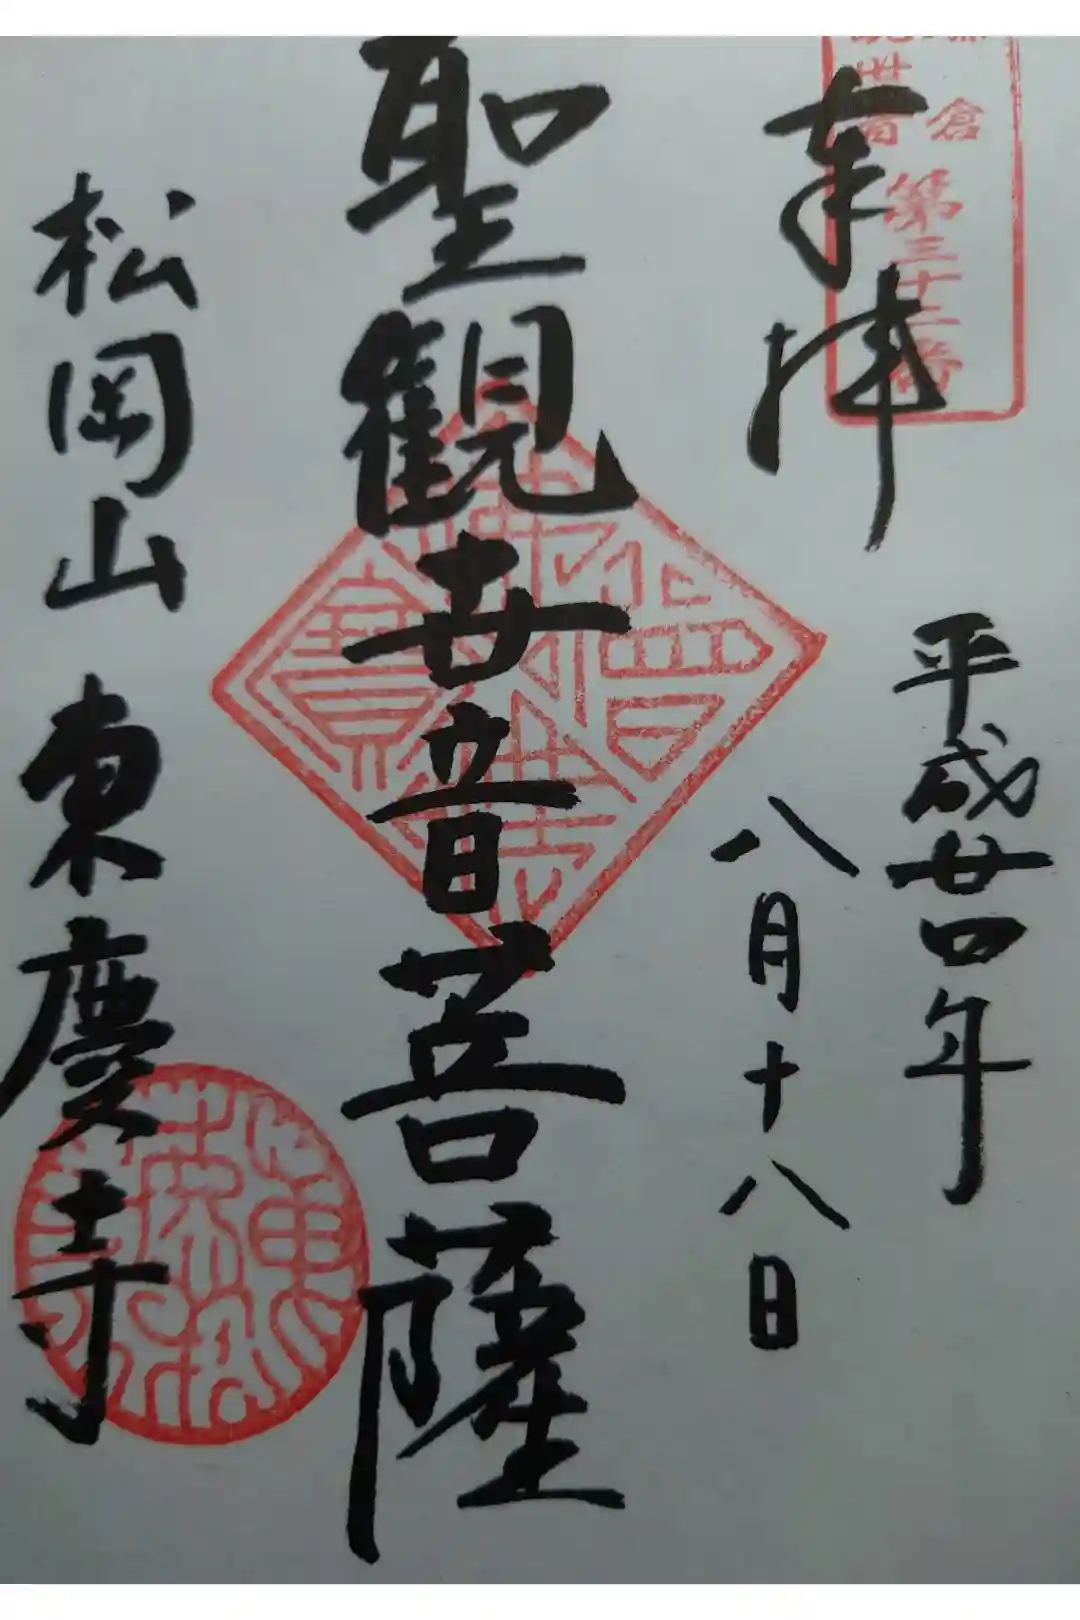 鎌倉
観世音
第三十三番
奉拝
平成廿四年
八月十八日
聖観世音菩薩
松岡山 東慶寺